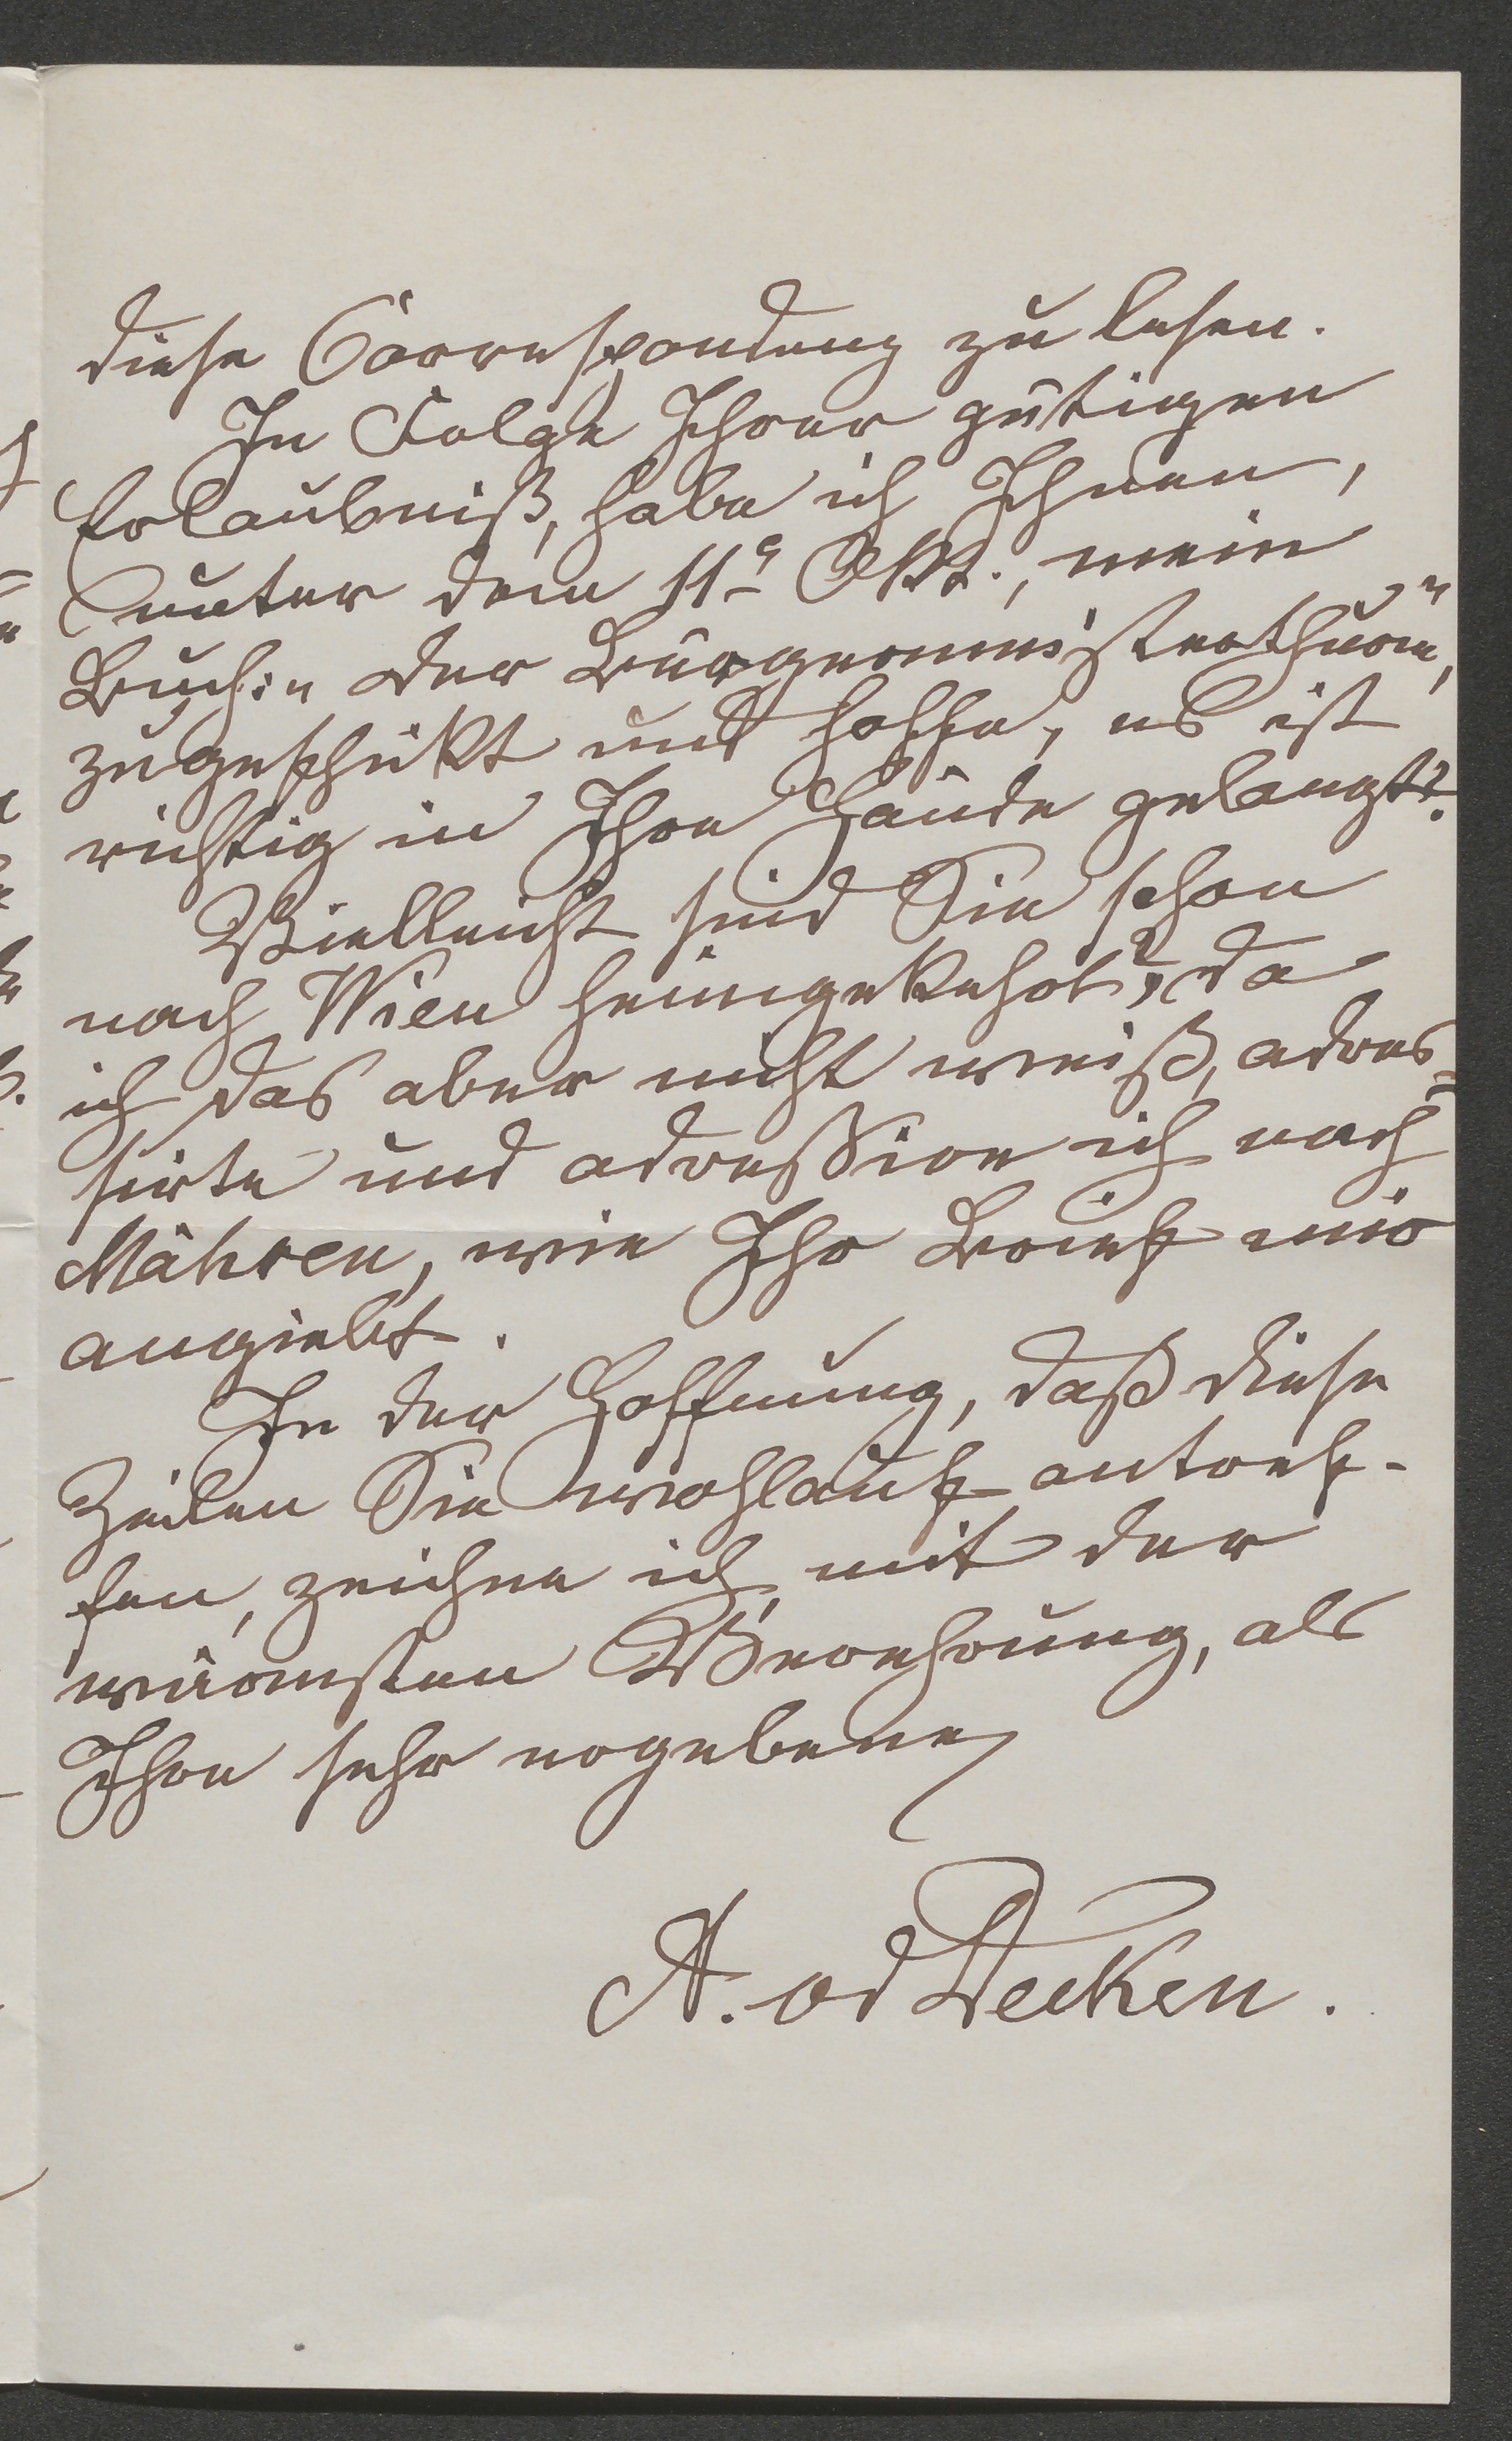 diese Correspondenz zu lesen.
In Folge Ihrer gütigen
Erlaubniß, habe ich Ihnen,
unter dem 11t Okt., mein
Buch: „ der Bürgermeisterthurm“,
zugeschikt und hoffe, es ist
richtig in Ihre Hände gelangt?.
Vielleicht sind Sie schon
nach Wien heimgekehrt?, da
ich das aber nicht weiß, adres=
sirte und adressire ich nach
Mähren, wie Ihr Brief mir
angiebt.
In der Hoffnung, daß diese
Zeilen Sie wohlauf antref-
fen, zeichne ich, mit der
wärmsten Verehrung, als
Ihre sehr ergebene
A. vd Decken.